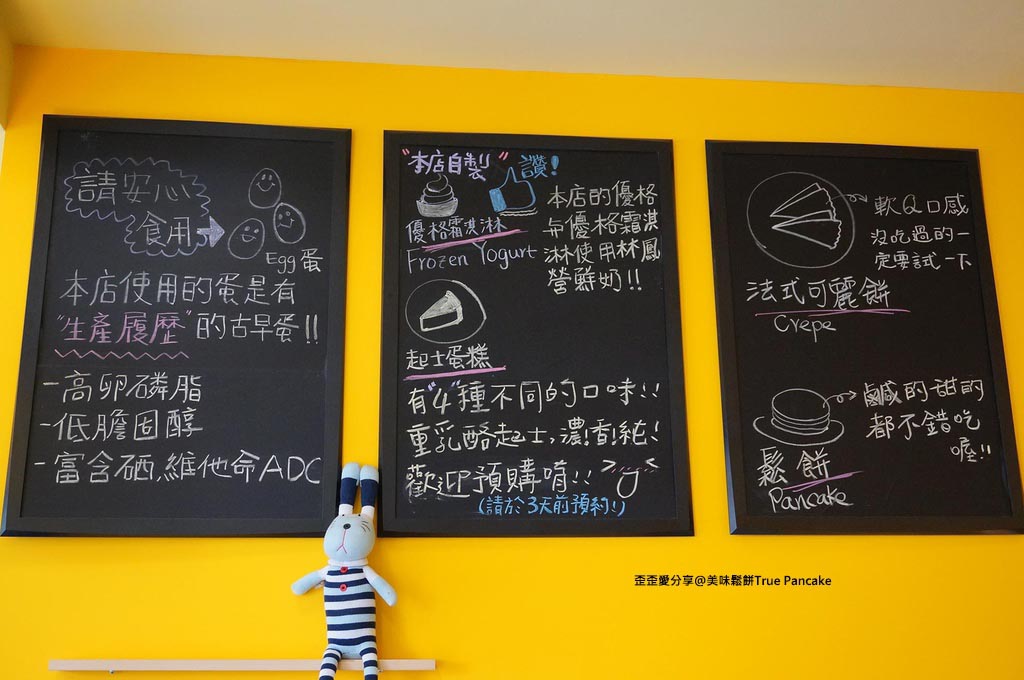 請安心
食用
Egg蛋
本店使用的蛋是有
"生產履歷"的古早蛋!!
-高卵磷脂
-低膽固醇
-富含硒.維他命ADC
"本店自製"
讚!
優格霜淇淋
Frozen Yogurt
本店的優格
与優格霜淇
淋使用林鳳
營鮮奶!!
起士蛋糕
有"4"種不同的口味!!
重乳酪起士,濃!香!純!
歡迎預購唷!!
(請於3天前預約!)
軟Q口感
沒吃過的一
定要試一下
法式可麗餅
Crepe
鹹的甜的
都不錯吃
喔!!
鬆餅
Pancake
歪歪愛分享@美味鬆餅True Pancake